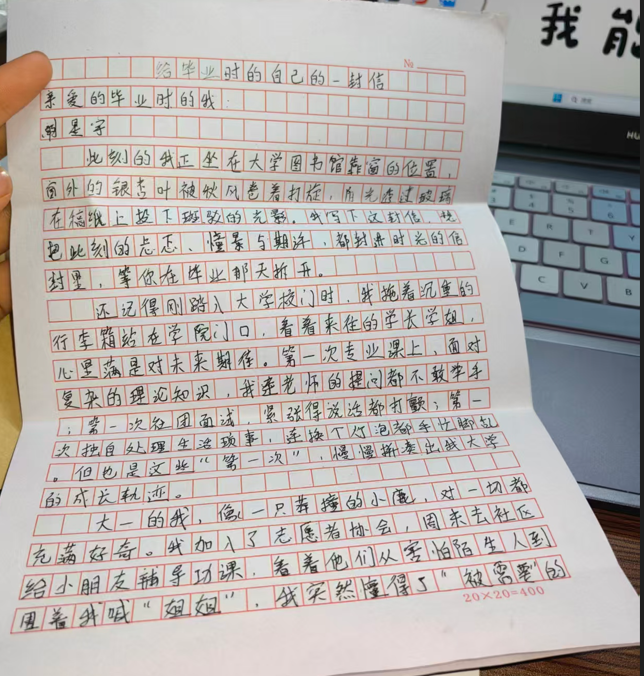 我能
№
给毕业时的自己的一封信
亲爱的毕业时的我:
此刻的我正坐在大学图书馆靠窗的位置,
窗外的银杏叶被秋风卷着打旋,阳光透过玻璃
在信纸上投下斑驳的光影。我写下这封信,想
把此刻的忐忑、憧憬与期许,都封进时光的信
封里,等你在毕业那天拆开。
还记得刚踏入大学校门时,我拖着沉重的
行李箱站在学院门口,看着来往的学长学姐,
心里满是对未来期待。第一次专业课上,面对
复杂的理论知识,我连老师的提问都不敢举手
;第一次社团面试,紧张得说话都打颤;第一
次独自处理生活琐事,连换个灯泡都手忙脚乱
。但也是这些“第一次”,慢慢拼凑出我大学
的成长轨迹。
大一的我,像一只莽撞的小鹿,对一切都
充满好奇。我加入了志愿者协会,周末去社区
给小朋友辅导功课,看着他们从害怕陌生人到
围着我喊“姐姐”,我突然懂得了“被需要”的
20×20=400